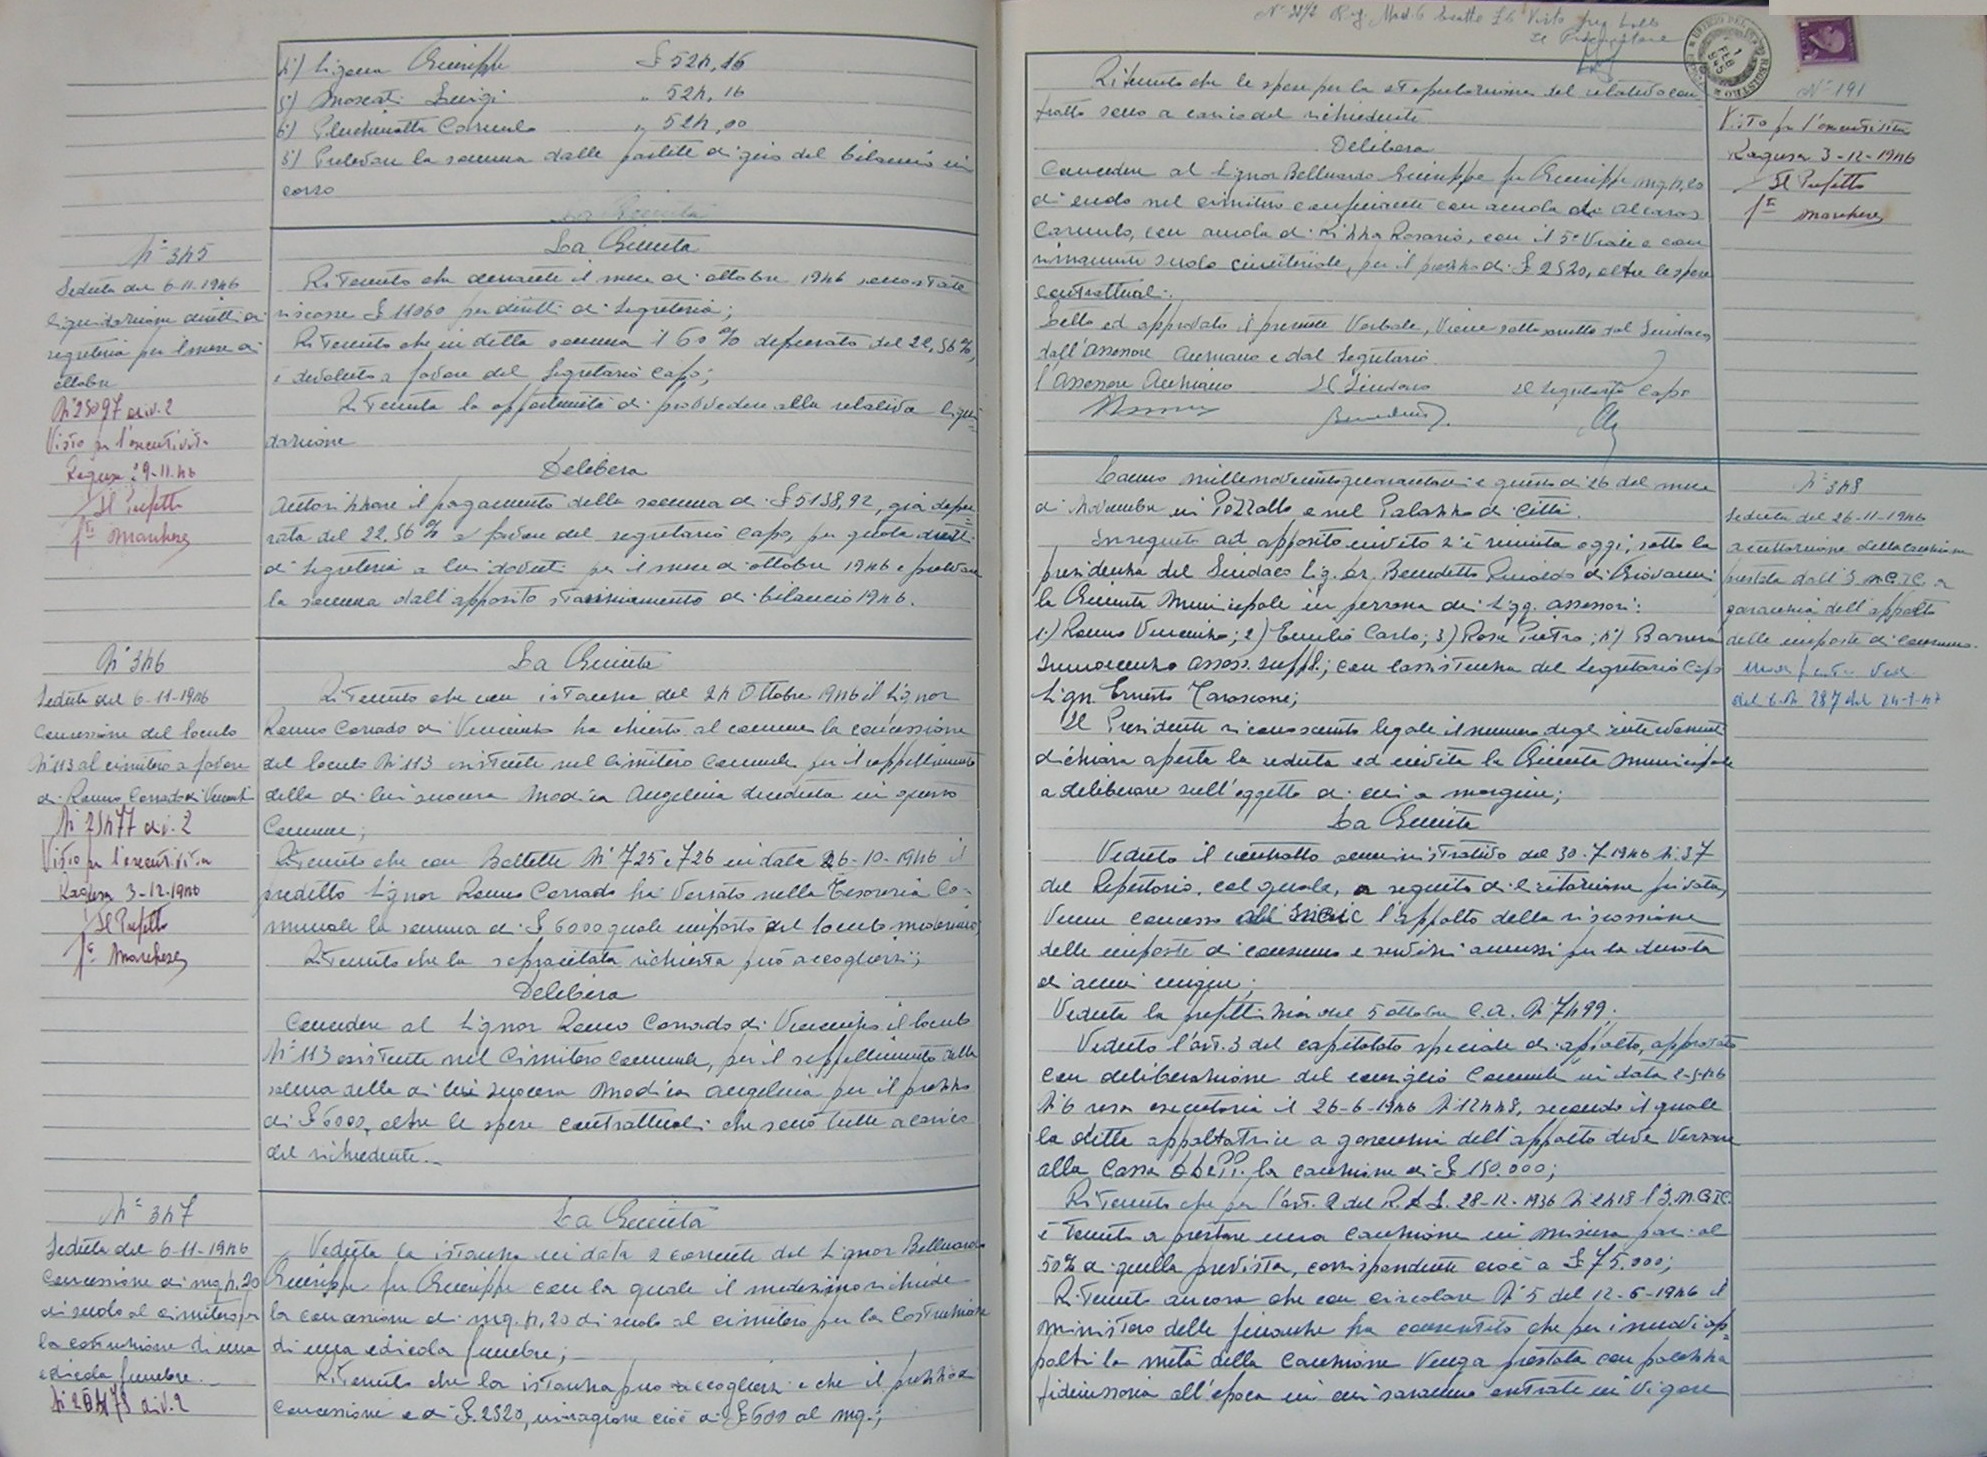 4°) Ligama Giuseppe £ 524,16
5°) Moscati Luigi " 524,16
6°) Pluchinotta Carmelo " 524,00
3°) Prelevare la somma dalle partite di giro del bilancio in
corso
N° 345
Seduta del 6-11-1946
liquidazione diritti di
segreteria per il mese di
ottobre
N° 25097 div. 2
Visto per l'esecutività
Ragusa 29-11-46
Il Prefetto
Fto Marchese
La Giunta
Ritenuto che durante il mese di ottobre 1946 sono state
riscosse £ 11060 per diritti di segreteria;
Ritenuto che in detta somma il 60% depurato del 22,56%,
è devoluto a favore del Segretario Capo;
Ritenuta la opportunità di provvedere alla relativa liqui=
dazione
Delibera
Autorizzare il pagamento della somma di £ 5138,92, già depu=
rata del 22,56% a favore del segretario Capo, per quota diritti
di segreteria a lui dovuti per il mese di ottobre 1946 e prelevare
la somma dall'apposito stanziamento di bilancio 1946.
N° 346
Seduta del 6-11-1946
Concessione del loculo
N° 113 al cimitero a favore
di Romeo Corrado di Vincenzo
N° 25477 div. 2
Visto per l'esecutività
Ragusa 3-12-1946
Il Prefetto
Fto Marchese
La Giunta
Ritenuto che con istanza del 24 Ottobre 1946 il Signor
Romeo Corrado di Vincenzo ha chiesto al comune la concessione
del loculo N° 113 esistente nel Cimitero Comunale per il seppellimento
della di lui suocera Modica Angelina deceduta in questo
Comune;
Ritenuto che con Bollette N° 725 e 726 in data 26-10-1946 il
predetto Signor Romeo Corrado ha versato nella Tesoreria Co=
munale la somma di £ 6000 quale importo del loculo medesimo;
Ritenuto che la sopracitata richiesta può accogliersi;
Delibera
Concedere al Signor Romeo Corrado di Vincenzo il loculo
N° 113 esistente nel Cimitero Comunale, per il seppellimento della
salma della di lui suocera Modica Angelina per il prezzo
di £ 6000, oltre le spese contrattuali che sono tutte a carico
del richiedente.
N° 347
Seduta del 6-11-1946
Concessione di mq. 4,20
di suolo al cimitero per
la costruzione di una
edicola funebre.
div. 2
La Giunta
Veduta la istanza in data 2 corrente del Signor Belluardo
Giuseppe fu Giuseppe con la quale il medesimo richiede
la concessione di mq. 4,20 di suolo al cimitero per la costruzione
di una edicola funebre;
Ritenuto che la istanza può accogliersi e che il prezzo di
concessione è di £. 2520, in ragione cioè di £ 600 al mq.;
Visto per bollo
Il Procuratore
Ritenuto che le spese per la stipulazione del relativo con
tratto sono a carico del richiedente.
Delibera
Concedere al Signor Belluardo Giuseppe fu Giuseppe mq. 4,20
di suolo nel cimitero confinante con suolo di Alcaros
Carmelo, con suolo di Rizza Rosario, con il 5° Viale e con
rimanente suolo cimiteriale, per il prezzo di £ 2520, oltre le spese
contrattuali.
Letto ed approvato il presente Verbale, viene sottoscritto dal Sindaco
dall'Assessore Anziano e dal Segretario.
L'Assessore Anziano Il Sindaco Il Segretario Capo
N° 191
Visto per l'esecutività
Ragusa 3-12-1946
Il Prefetto
Fto Marchese
L'anno millenovecentoquarantasei e questo dì 26 del mese
di Novembre in Pozzallo e nel Palazzo di Città.
In seguito ad apposito invito s'è riunita oggi, sotto la
presidenza del Sindaco Sig. Dr. Benedetto Rinaldo di Giovanni
la Giunta Municipale in persona dei Sigg. Assessori:
1°) Romeo Vincenzo; 2°) Emilio Carlo; 3°) Rosa Pietro; 4°) Barrera
Innocenzo assess. suppl.; con l'assistenza del Segretario Capo
Sign. Ernesto Tarascone;
Il Presidente riconosciuto legale il numero degli intervenuti
dichiara aperta la seduta ed invita la Giunta Municipale
a deliberare sull'oggetto di cui a margine;
N° 348
Seduta del 26-11-1946
accettazione della cauzione
prestata dall'I.N.G.I.C. a
garanzia dell'appalto
delle imposte di consumo.
del G.M. 287 del 24-9-47
La Giunta
Veduto il contratto amministrativo del 30-7-1946 N. 37
del Repertorio, col quale, a seguito di licitazione privata,
venne concesso all'INGIC l'appalto della riscossione
delle imposte di consumo e servizi annessi per la durata
di anni cinque;
Veduta la prefettizia del 5 ottobre c.a. N° 7499;
Veduto l'art. 3 del capitolato speciale di appalto, approvato
con deliberazione del consiglio Comunale in data 2-5-46
N° 6 resa esecutoria il 26-6-1946 N° 12448, secondo il quale
la ditta appaltatrice a garanzia dell'appalto deve versare
alla Cassa DD.PP. la cauzione di £ 150.000;
Ritenuto che per l'art. 2 del R.D.L. 28-12-1936 N° 2418 l'I.N.G.I.C.
è tenuto a prestare una cauzione in misura pari al
50% di quella prevista, corrispondente cioè a £ 75.000;
Ritenuto ancora che con circolare N° 5 del 12-6-1946 il
Ministero delle finanze ha consentito che per i nuovi ap=
palti la metà della cauzione venga prestata con polizza
fideiussoria all'epoca in cui saranno entrate in vigore